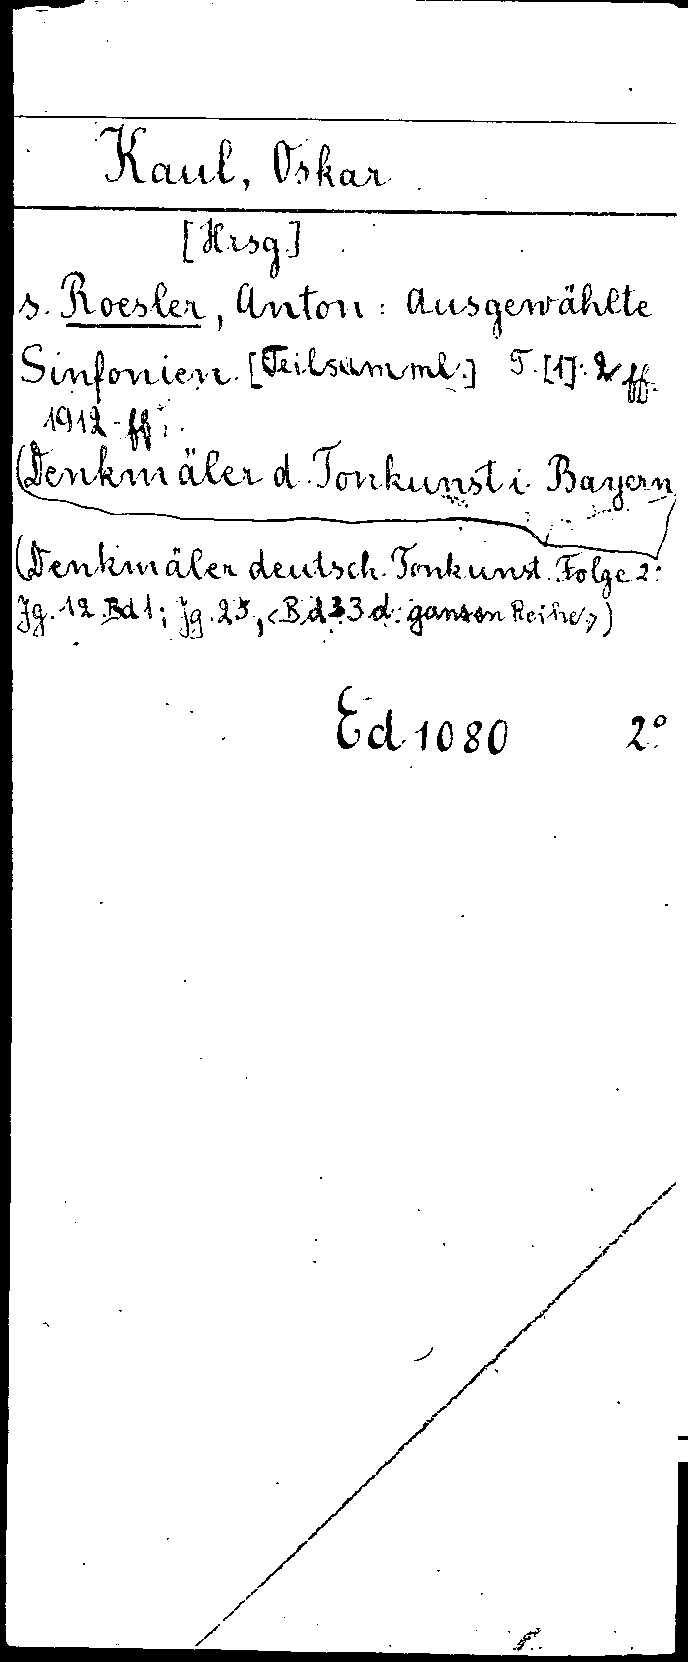 Kaul, Oskar
[Hrsg.]
s. Roesler, Anton: Ausgewählte
Sinfonien. [Teilsamml.] T. [1]. 2 ff.
1912 ff.
(Denkmäler d. Tonkunst i. Bayern
(Denkmäler deutsch. Tonkunst. Folge 2:
Jg. 12. Bd 1; Jg. 25, <Bd 33 d. ganzen Reihe>)
Ed 1080 2°